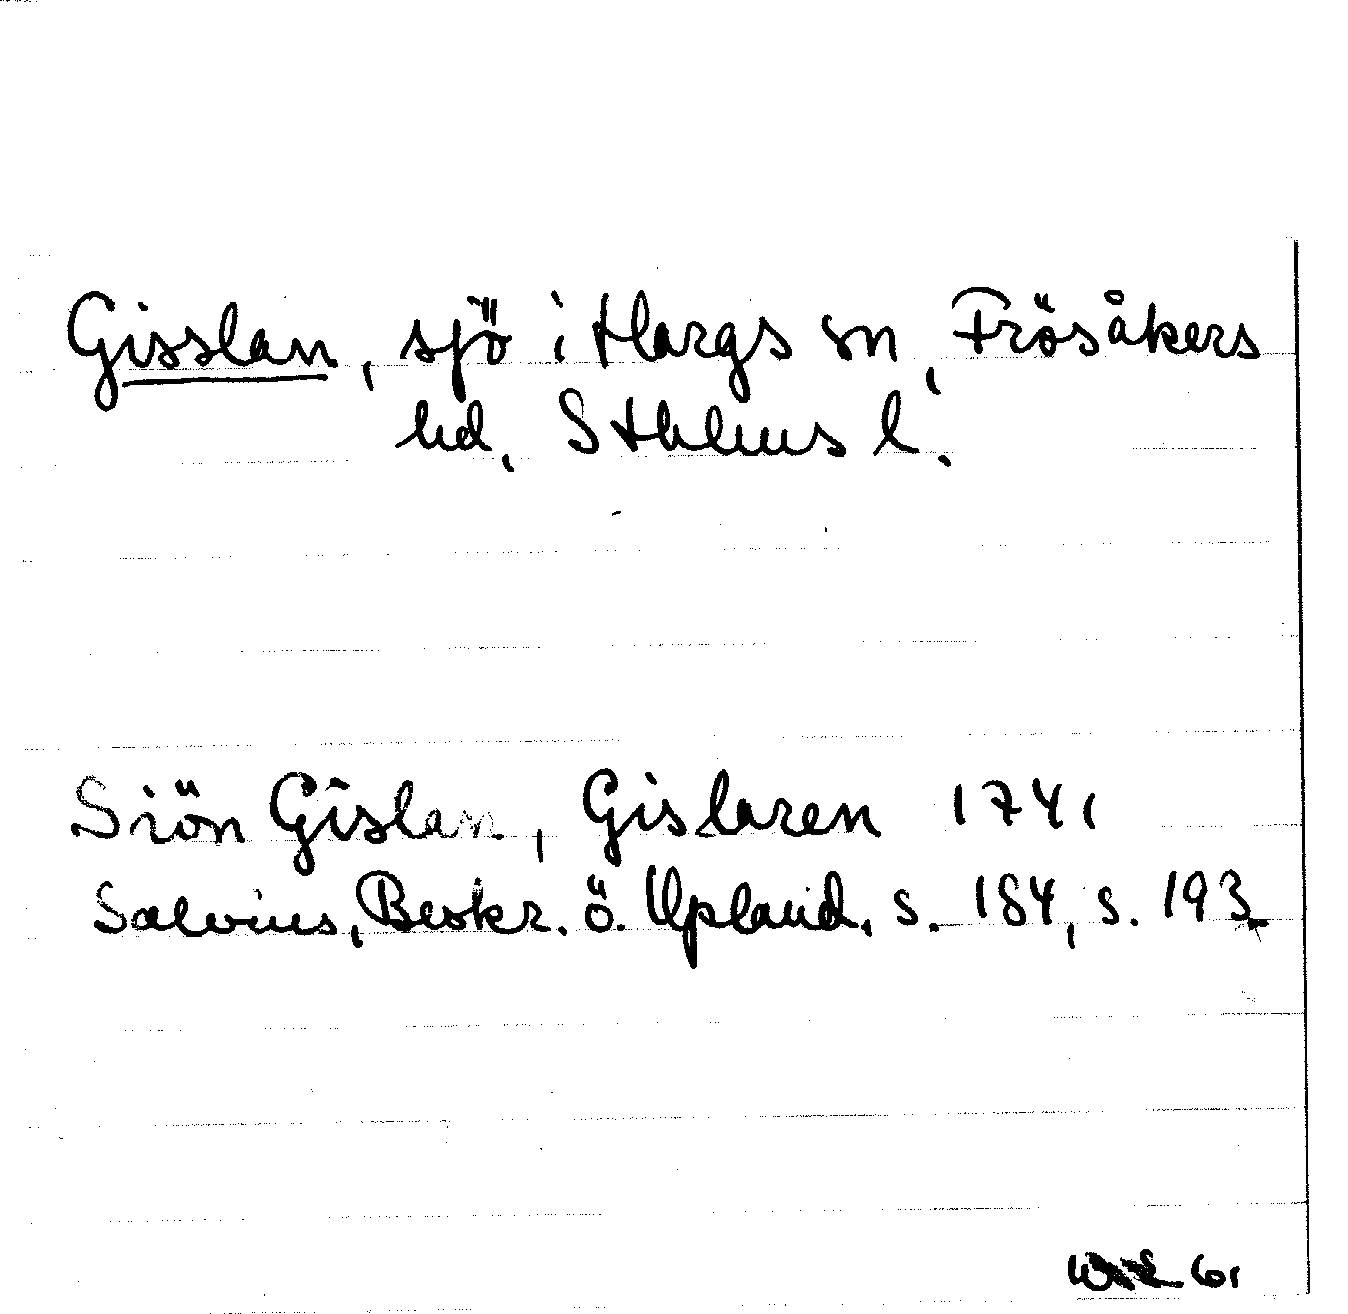 Gisslan, sjö i Hargs sn, Frösåkers
hd, Sthlms l.
Siön Gislan, Gislaren 1741
Salvius, Beskr. ö. Upland, s. 184, s. 193.
61